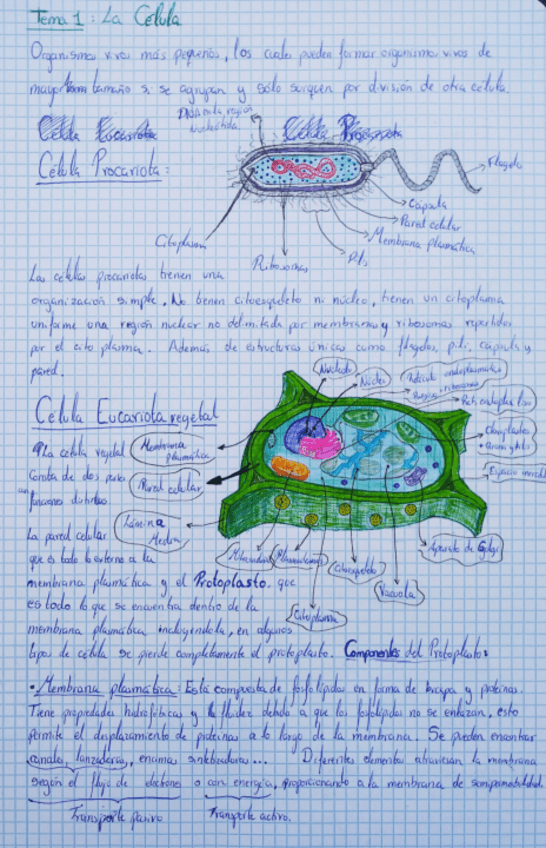 Tema 1: La Célula
Organismos vivos más pequeños, los cuales pueden formar organismos vivos de
mayor tamaño si se agrupan y sólo surgen por división de otra célula.
Célula Eucariota Célula Procariota
Célula Procariota:
Flagelo
Cápsula
Pared celular
Membrana plasmática
Pili
Ribosomas
Citoplasma
Las células procariotas tienen una
organización simple. No tienen citoesqueleto ni núcleo, tienen un citoplasma
uniforme una región nuclear no delimitada por membranas y ribosomas repartidos
por el citoplasma. Además de estructuras únicas como flagelos, pili, cápsula y
pared.
Célula Eucariota vegetal
Nucleolo
Núcleo
Retículo endoplasmático
Rugoso + ribosomas
Ret. endoplas. liso
Cloroplastos
Aparato de Golgi
Vacuola
Citoesqueleto
Citoplasma
Plasmodesmo
Mitocondria
Lámina
Media
Pared celular
Membrana
plasmática
La célula vegetal
consta de dos partes
funciones distintas
La pared celular
que es todo lo externo a la
membrana plasmática y el Protoplasto, que
es todo lo que se encuentra dentro de la
membrana plasmática incluyéndola, en algunos
tipos de célula se pierde completamente el protoplasto. Componentes del Protoplasto:
• Membrana plasmática: Está compuesta de fosfolípidos en forma de bicapa y proteínas.
Tiene propiedades hidrofóbicas y fluidez debido a que los fosfolípidos no se enlazan, esto
permite el desplazamiento de proteínas a lo largo de la membrana. Se pueden encontrar
canales, lanzaderas, enzimas sintetizadoras... Diferentes elementos atraviesan la membrana
según el flujo de o con energía, proporcionando a la membrana de semipermeabilidad.
Transporte pasivo Transporte activo.